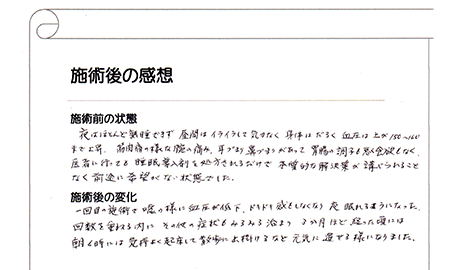 施術後の感想
施術前の状態
夜はほとんど熟睡できず 昼間はイライラして気力なく 身体はだるく 血圧は上が150〜160
まで上昇、筋肉痛の様な腕の痛み、耳づまり 鼻づまりがあって 胃腸の調子も悪く食欲もなく、
医者に行っても 睡眠導入剤を処方されるだけで 本質的な解決策が講じられること
なく前途に希望がない状態でした。
施術後の変化
一回目の施術で嘘の様に血圧が低下、ドキドキ感もしなくなり 夜 眠れるようになった、
回数を重ねる内に その他の症状もみるみる治まり 3か月ほど経った頃には
朝6時には 気持よく起床して散歩に出掛けるなど 元気に過せる様になりました。